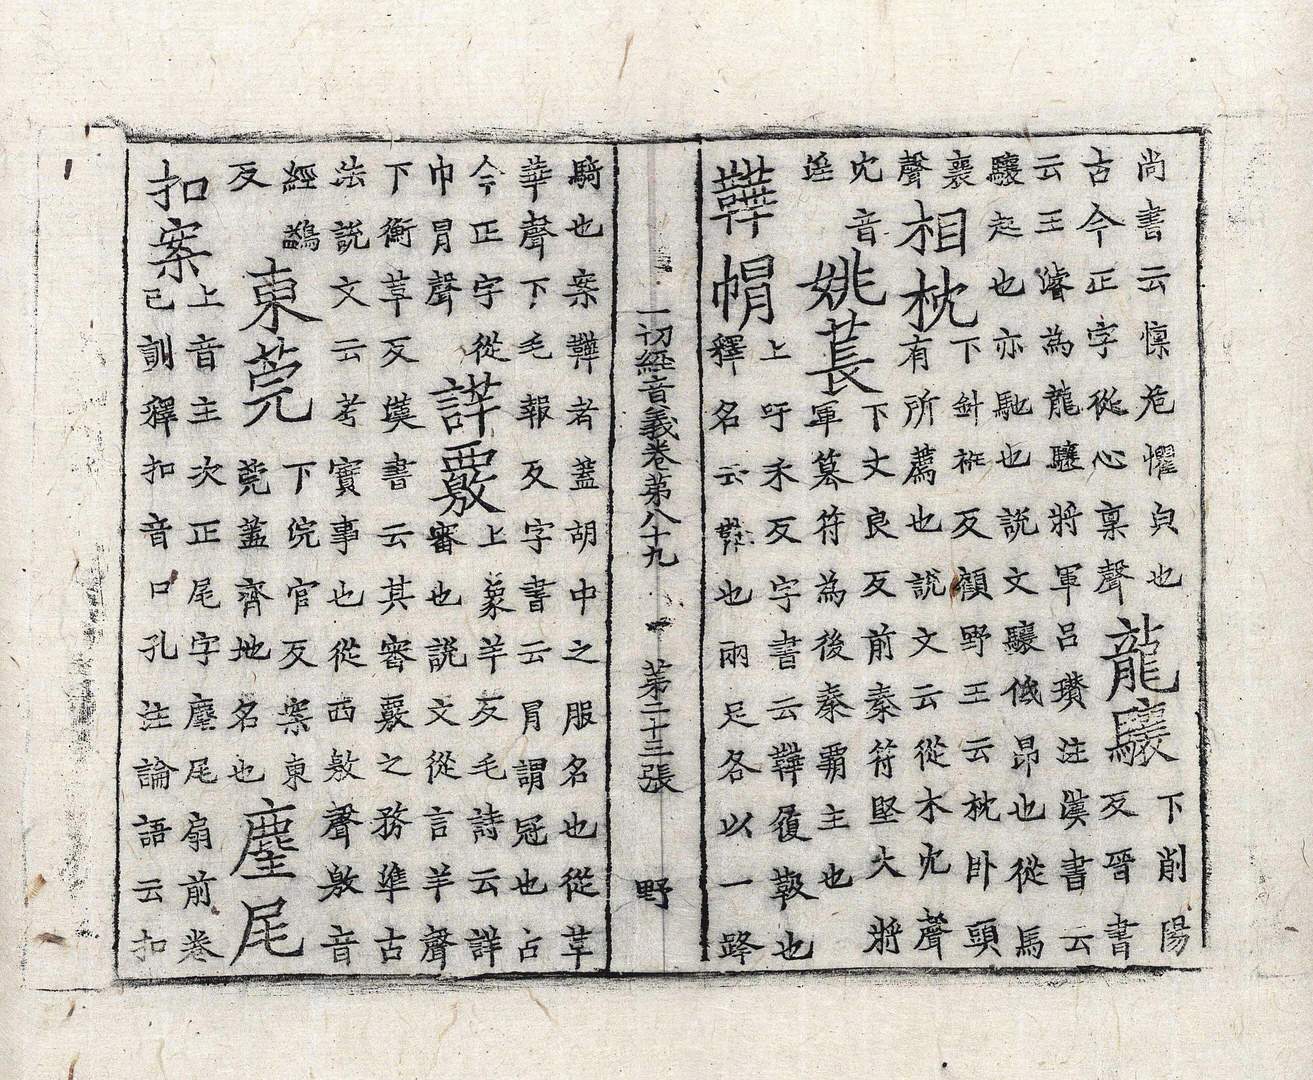 尚書云懍危懼皃也
古今正字從心稟聲
龍驤
下削陽
反晉書
云王濬為龍驤將軍呂瓚注漢書云
驤起也亦馳也說文驤低昂也從馬
襄
聲
相枕
下針衽反顧野王云枕臥頭
有所薦也說文云從木冘聲
冘音
淫
姚萇
下丈良反前秦苻堅大將
軍篡符為後秦霸主也
鞾帽
上吁禾反字書云鞾履靿也
釋名云鞾也兩足各以一跨
一切經音義卷第八十九 第二十三張 野
騎也案鞾者蓋胡中之服名也從革
華聲下毛報反字書云冃謂冠也占
今正字從
巾冃聲
詳覈
上象羊反毛詩云詳
審也說文從言羊聲
下衡革反漢書云其審覈之務準古
法說文云考實事也從西敫聲敫音
經鷁
反
東莞
下浣官反案東
莞蓋齊地名也
麈尾
扣案
上音主次正尾字麈尾扇前卷
已訓釋扣音口孔注論語云扣